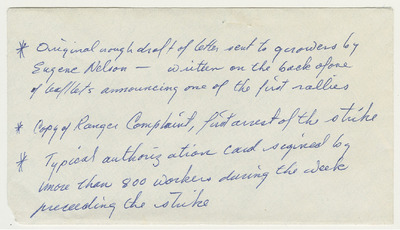 * Original rough draft of letter sent to growers by
Eugene Nelson — written on the back of one
of leaflets announcing one of the first rallies
* Copy of Ranger Complaint, first arrest of the strike
* Typical authorization card segined by
more than 800 workers during the week
preceeding the strike